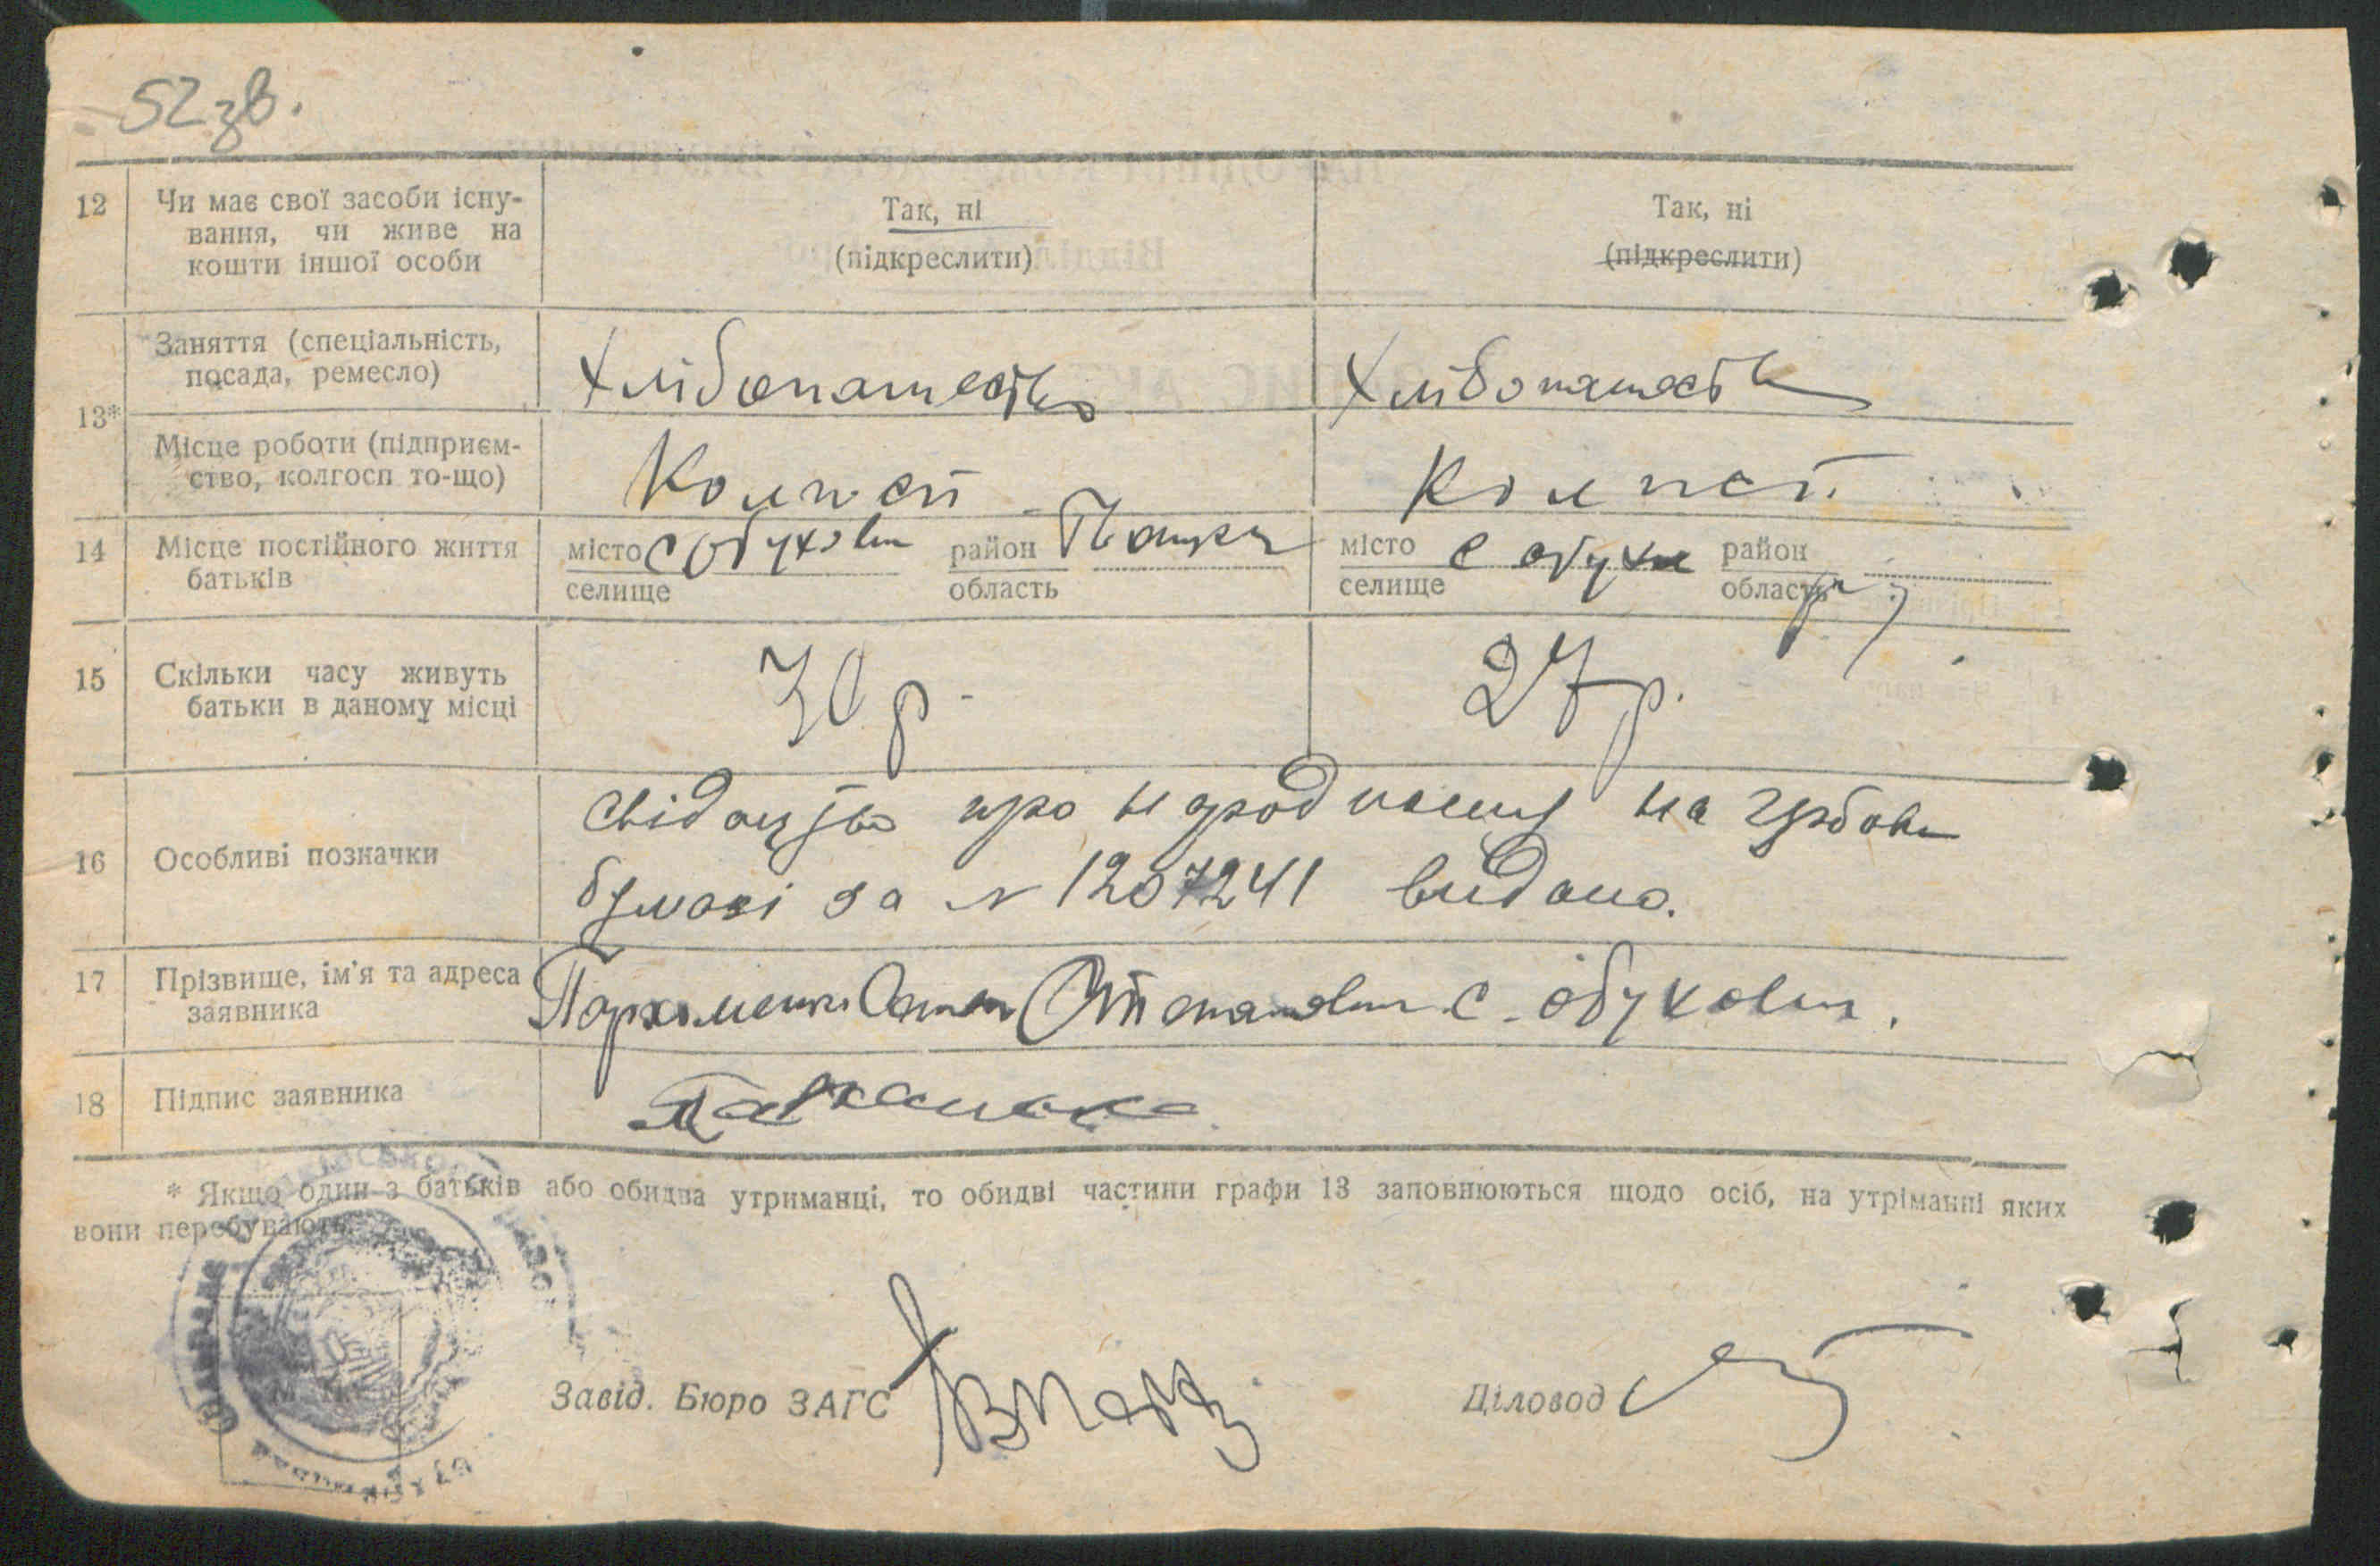 52 зв.
12 Чи має свої засоби існу- Так, ні Так, ні
вання, чи живе на (підкреслити) (підкреслити)
кошти іншої особи
13* Заняття (спеціальність, Хлібопашество Хлібопашество
посада, ремесло)
Місце роботи (підприєм- Колгосп Колгосп
ство, колгосп то-що)
14 Місце постійного життя місто с Обухови район місто с Обухо район
батьків селище область селище область
15 Скільки часу живуть 30 р. 27 р.
батьки в даному місці
16 Особливі позначки свідоцтво про народження на гербовій
бумазі за N 1207241 видано.
17 Прізвище, ім'я та адреса Пархоменко Степанович с. Обухович.
заявника
18 Підпис заявника
* Якщо один з батьків або обидва утриманці, то обидві частини графи 13 заповнюються щодо осіб, на утріманні яких
вони перебувають.
М. П.
Завід. Бюро ЗАГС Діловод